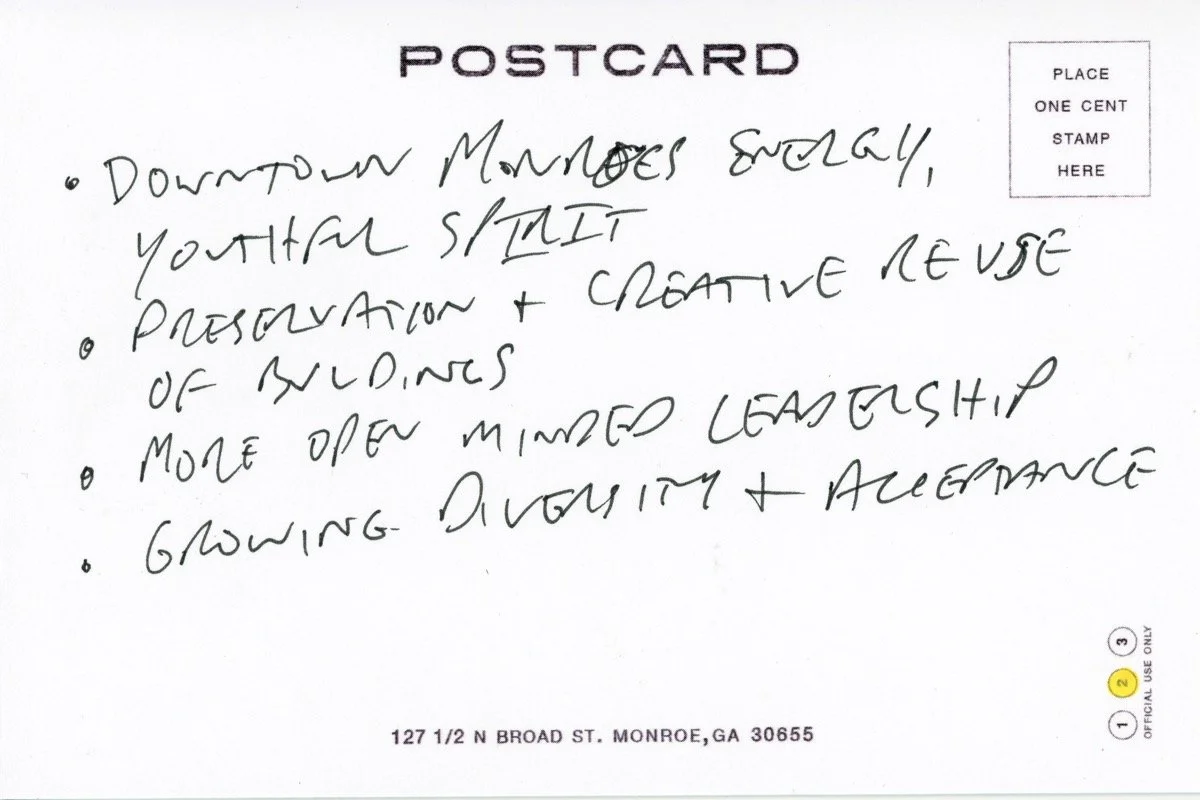 POSTCARD
PLACE
ONE CENT
STAMP
HERE
• DOWNTOWN MONROES ENERGY,
YOUTHFUL SPIRIT
• PRESERVATION + CREATIVE REUSE
OF BUILDINGS
• MORE OPEN MINDED LEADERSHIP
• GROWING DIVERSITY + ACCEPTANCE
1 2 3
OFFICIAL USE ONLY
127 1/2 N BROAD ST. MONROE,GA 30655